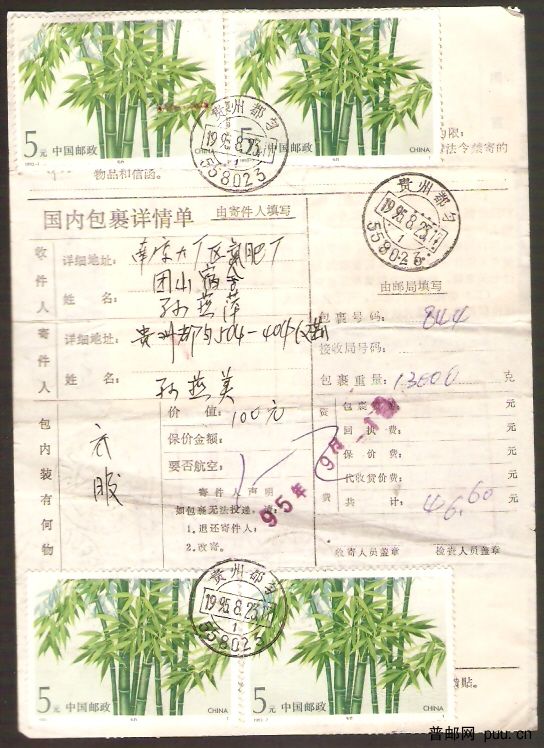 5元 中国邮政 CHINA
5元 中国邮政 CHINA
贵州都匀
1995.8.23.17
1
558023
物品和信函。
法令禁寄的
国内包裹详情单 由寄件人填写
收件人
详细地址: 南京大厂区氮肥厂
团山宿舍
姓名: 孙燕萍
寄件人
详细地址: 贵州都匀504-404
姓名: 孙燕美
包内装有何物
衣服
价值: 100元
保价金额:
要否航空:
寄件人声明
如包裹无法投递,请:
1.退还寄件人;
2.改寄。
95年9月
贵州都匀
1995.8.23.17
1
558023
由邮局填写
包裹号码: 844
接收局号码:
包裹重量: 13000 克
资费
包裹费: 元
回执费: 元
保价费: 元
代收货价费: 元
共计: 46.60 元
收寄人员盖章 检查人员盖章
贵州都匀
1995.8.23.17
1
558023
5元 中国邮政 CHINA
5元 中国邮政 CHINA
普邮网 puu.cn